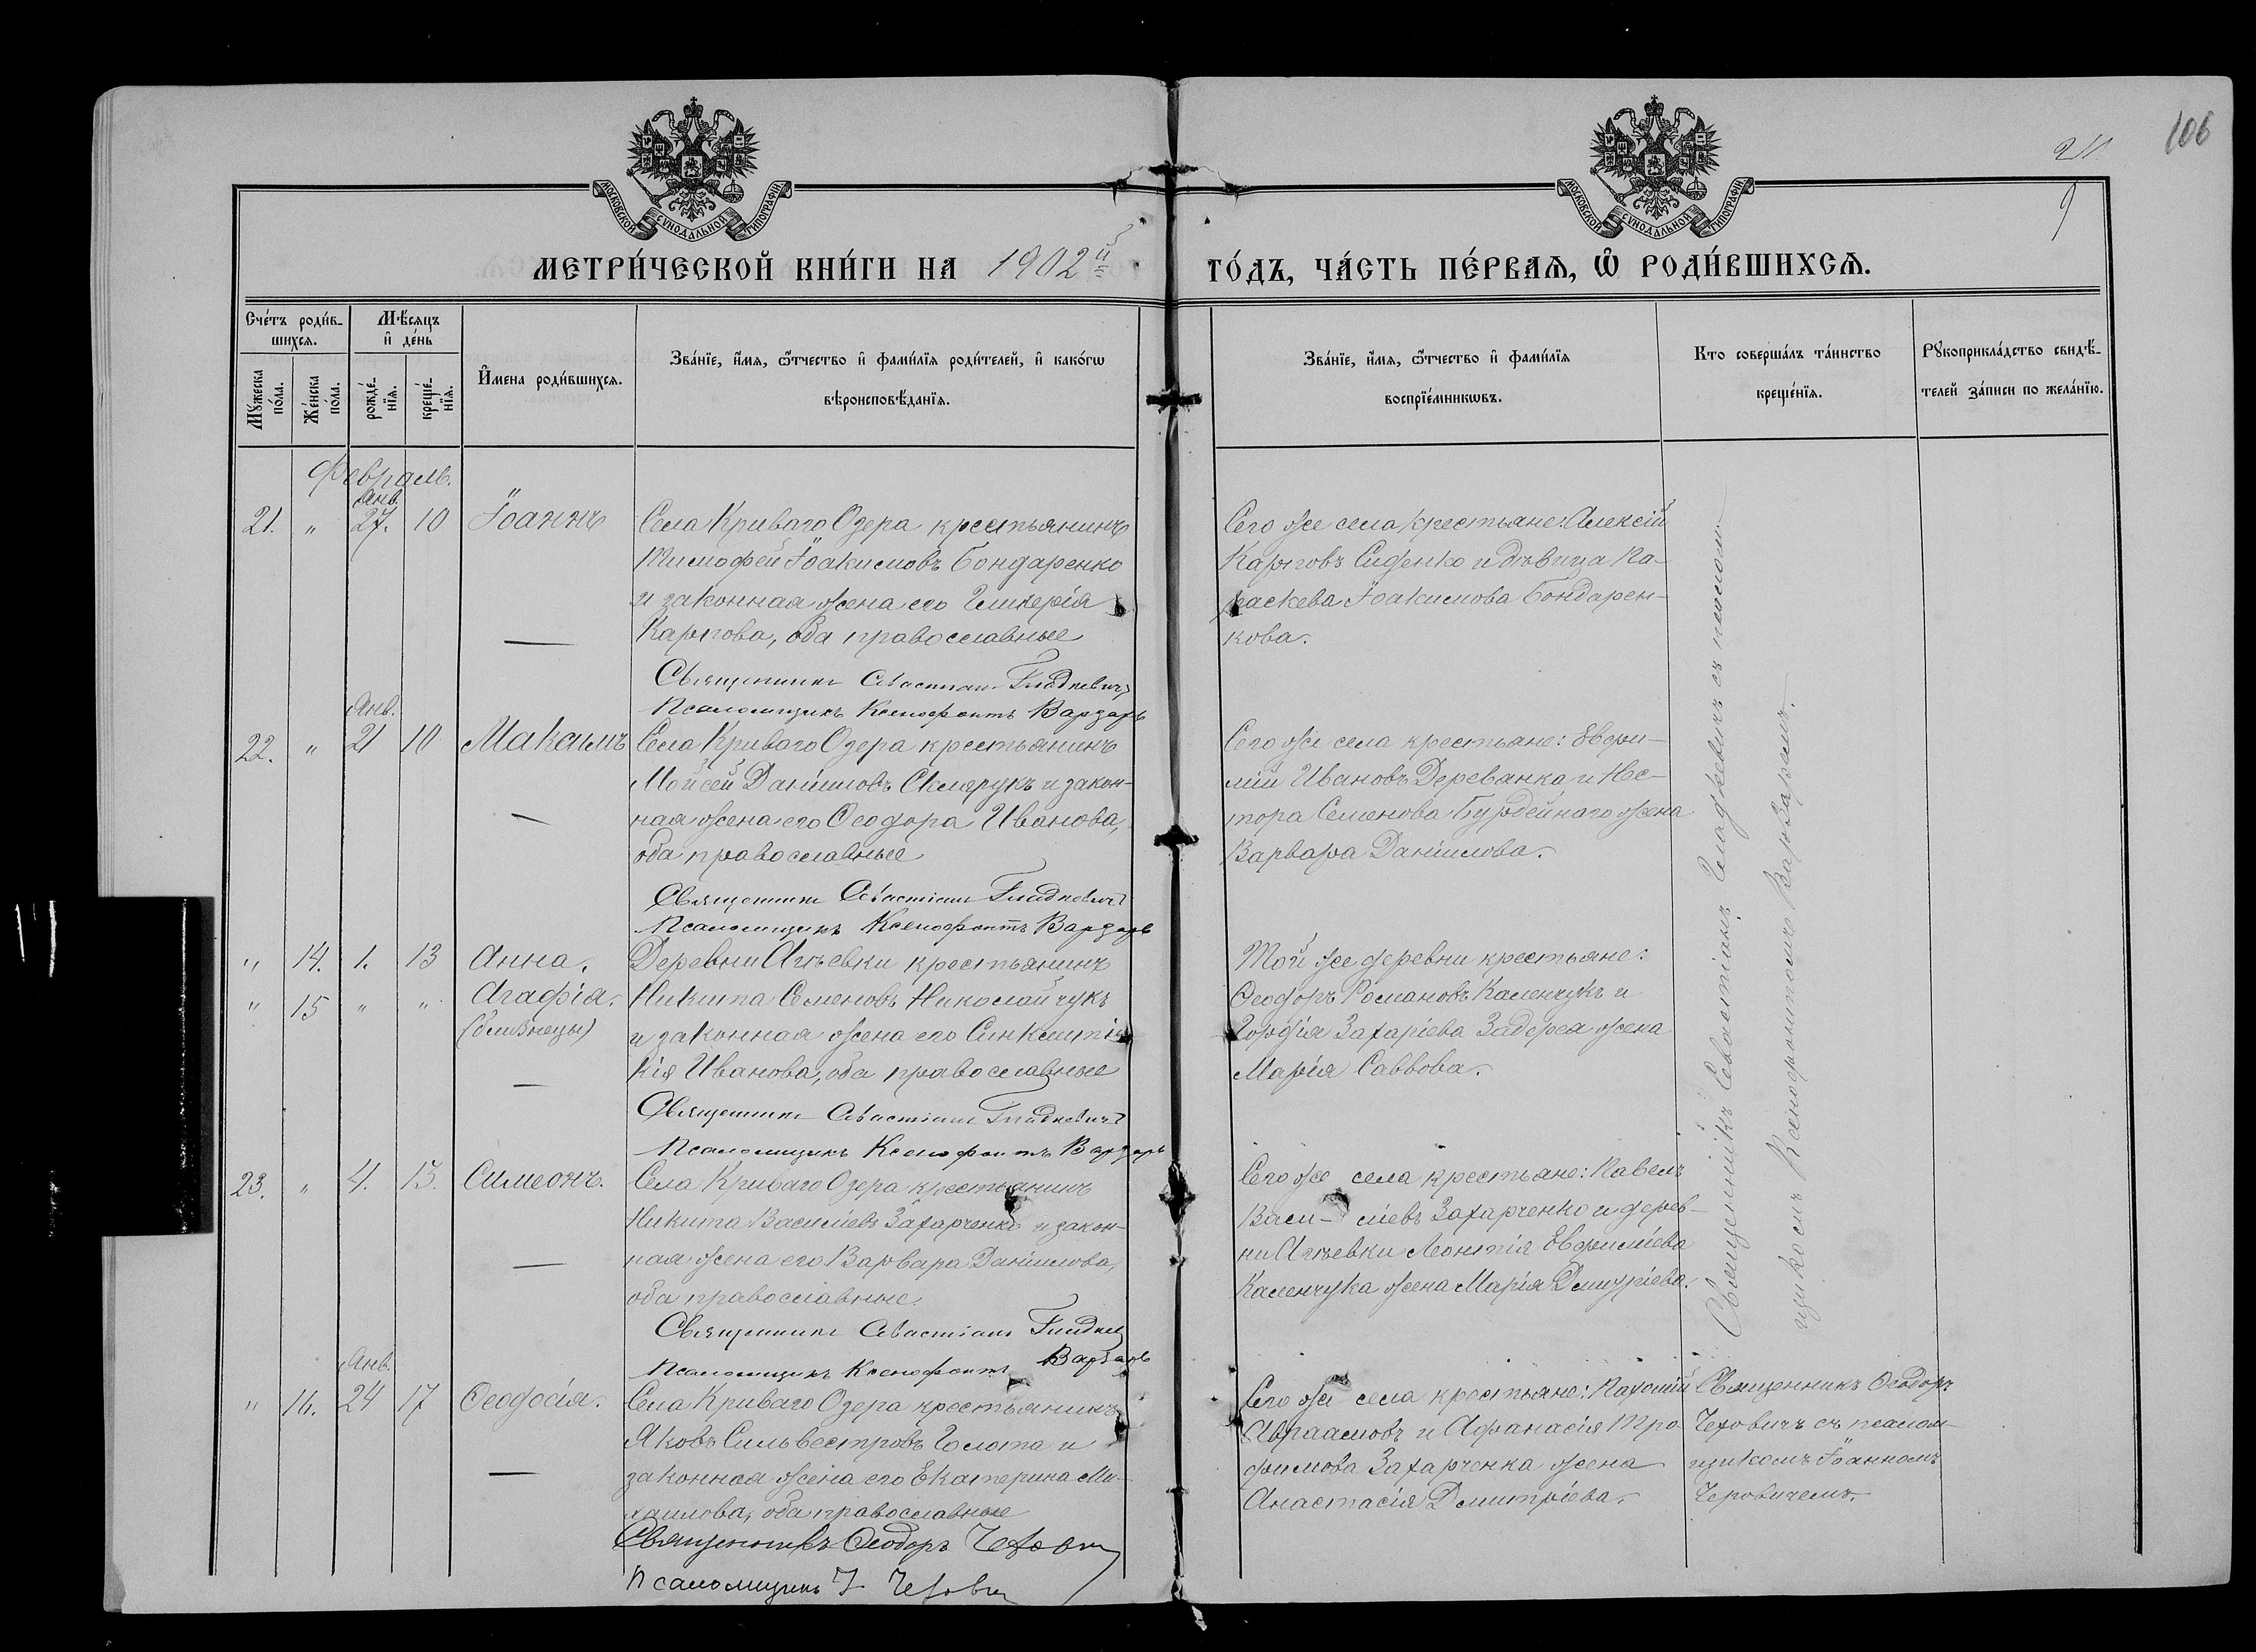 106
МОСКОВСКОЙ СѴНОДАЛЬНОЙ ТИПОГРАФІИ
МОСКОВСКОЙ СѴНОДАЛЬНОЙ ТИПОГРАФІИ
МЕТРИ́ЧЕСКОЙ КНИ́ГИ НА 1902й
ГО́ДЪ, ЧА́СТЬ ПЕ́РВАѦ, Ѽ РОДИ́ВШИХСѦ.
Сче́тъ роди́в-
шихсѧ.
Му́жеска по́ла.
Же́нска по́ла.
Мѣ́сѧцъ
и҆ де́нь
рожде́-
нїѧ.
креще́-
нїѧ.
И҆мена роди́вшихсѧ.
Зва́нїе, и҆́мѧ, ѻ҆́тчество и҆ фами́лїѧ роди́телей, и҆ како́гѡ
вѣроисповѣ́данїѧ.
Зва́нїе, и҆́мѧ, ѻ҆́тчество и҆ фами́лїѧ
воспрїе́мникѡвъ.
Кто соверша́лъ та́инство
креще́нїѧ.
Рꙋкоприкла́дство свидѣ́-
телей за́писи по жела́нїю.
Февраль.
Янв.
21. " 27. 10 Іоаннъ
Села Криваго Озера крестьянинъ
Тимофей Іоакимовъ Бондаренко
и законная жена его Гликерія
Карпова, оба православные
Священникъ Севастіанъ Гладкевичъ
Псаломщикъ Ксенофонтъ Варзарь
Сего же села крестьяне: Алексій
Карповъ Сиденко и дѣвица Па-
раскева Іоакимова Бондарен-
кова.
Янв.
22. " 21 10 Максимъ
Села Криваго Озера крестьянинъ
Мойсей Даніиловъ Склярукъ и закон-
ная жена его Ѳеодора Иванова,
оба православные
Священникъ Севастіанъ Гладкевичъ
Псаломщикъ Ксенофонтъ Варзарь
Сего же села крестьяне: Евфи-
мій Ивановъ Деревянка и Нес-
тора Семенова Бурдейнаго жена
Варвара Даніилова.
" 14. 1. 13 Анна.
" 15 " " Агафія.
(близнецы)
Деревни Агѣевки крестьянинъ
Никита Семеновъ Николайчукъ
и законная жена его Синклити-
кія Иванова, оба православные
Священникъ Севастіанъ Гладкевичъ
Псаломщикъ Ксенофонтъ Варзарь
Той же деревни крестьяне:
Ѳеодоръ Романовъ Каленчукъ и
Захаріева жена
Марія Саввова.
23. " 4. 13. Симеонъ.
Села Криваго Озера крестьянинъ
Никита Василіевъ Захарченко и закон-
ная жена его Варвара Даніилова,
оба православные.
Священникъ Севастіанъ
Псаломщикъ Ксенофонтъ Варзарь
Сего же села крестьяне: Павелъ
Васи-ліевъ Захарченко и дерев-
ни Агѣевки Леонтія Евфиміева
Каленчука жена Марія Дмитріева.
Священникъ Севастіанъ Гладкевичъ съ псалом-
щикомъ Ксенофонтомъ Варзаремъ.
Янв.
" 16. 24 17 Ѳеодосія.
Села Криваго Озера крестьянинъ
Яковъ Сильвестровъ Голота и
законная жена его Екатерина Ми-
хаилова, оба православные
Священникъ Ѳеодоръ
Псаломщикъ І.
Сего же села крестьяне: Пахомій
Авраамовъ и Афанасія Тро
фимова Захарченка жена
Анастасія Дмитріева.
Священникъ Ѳеодоръ
Чеховичъ съ псалом-
щикомъ Іоанномъ